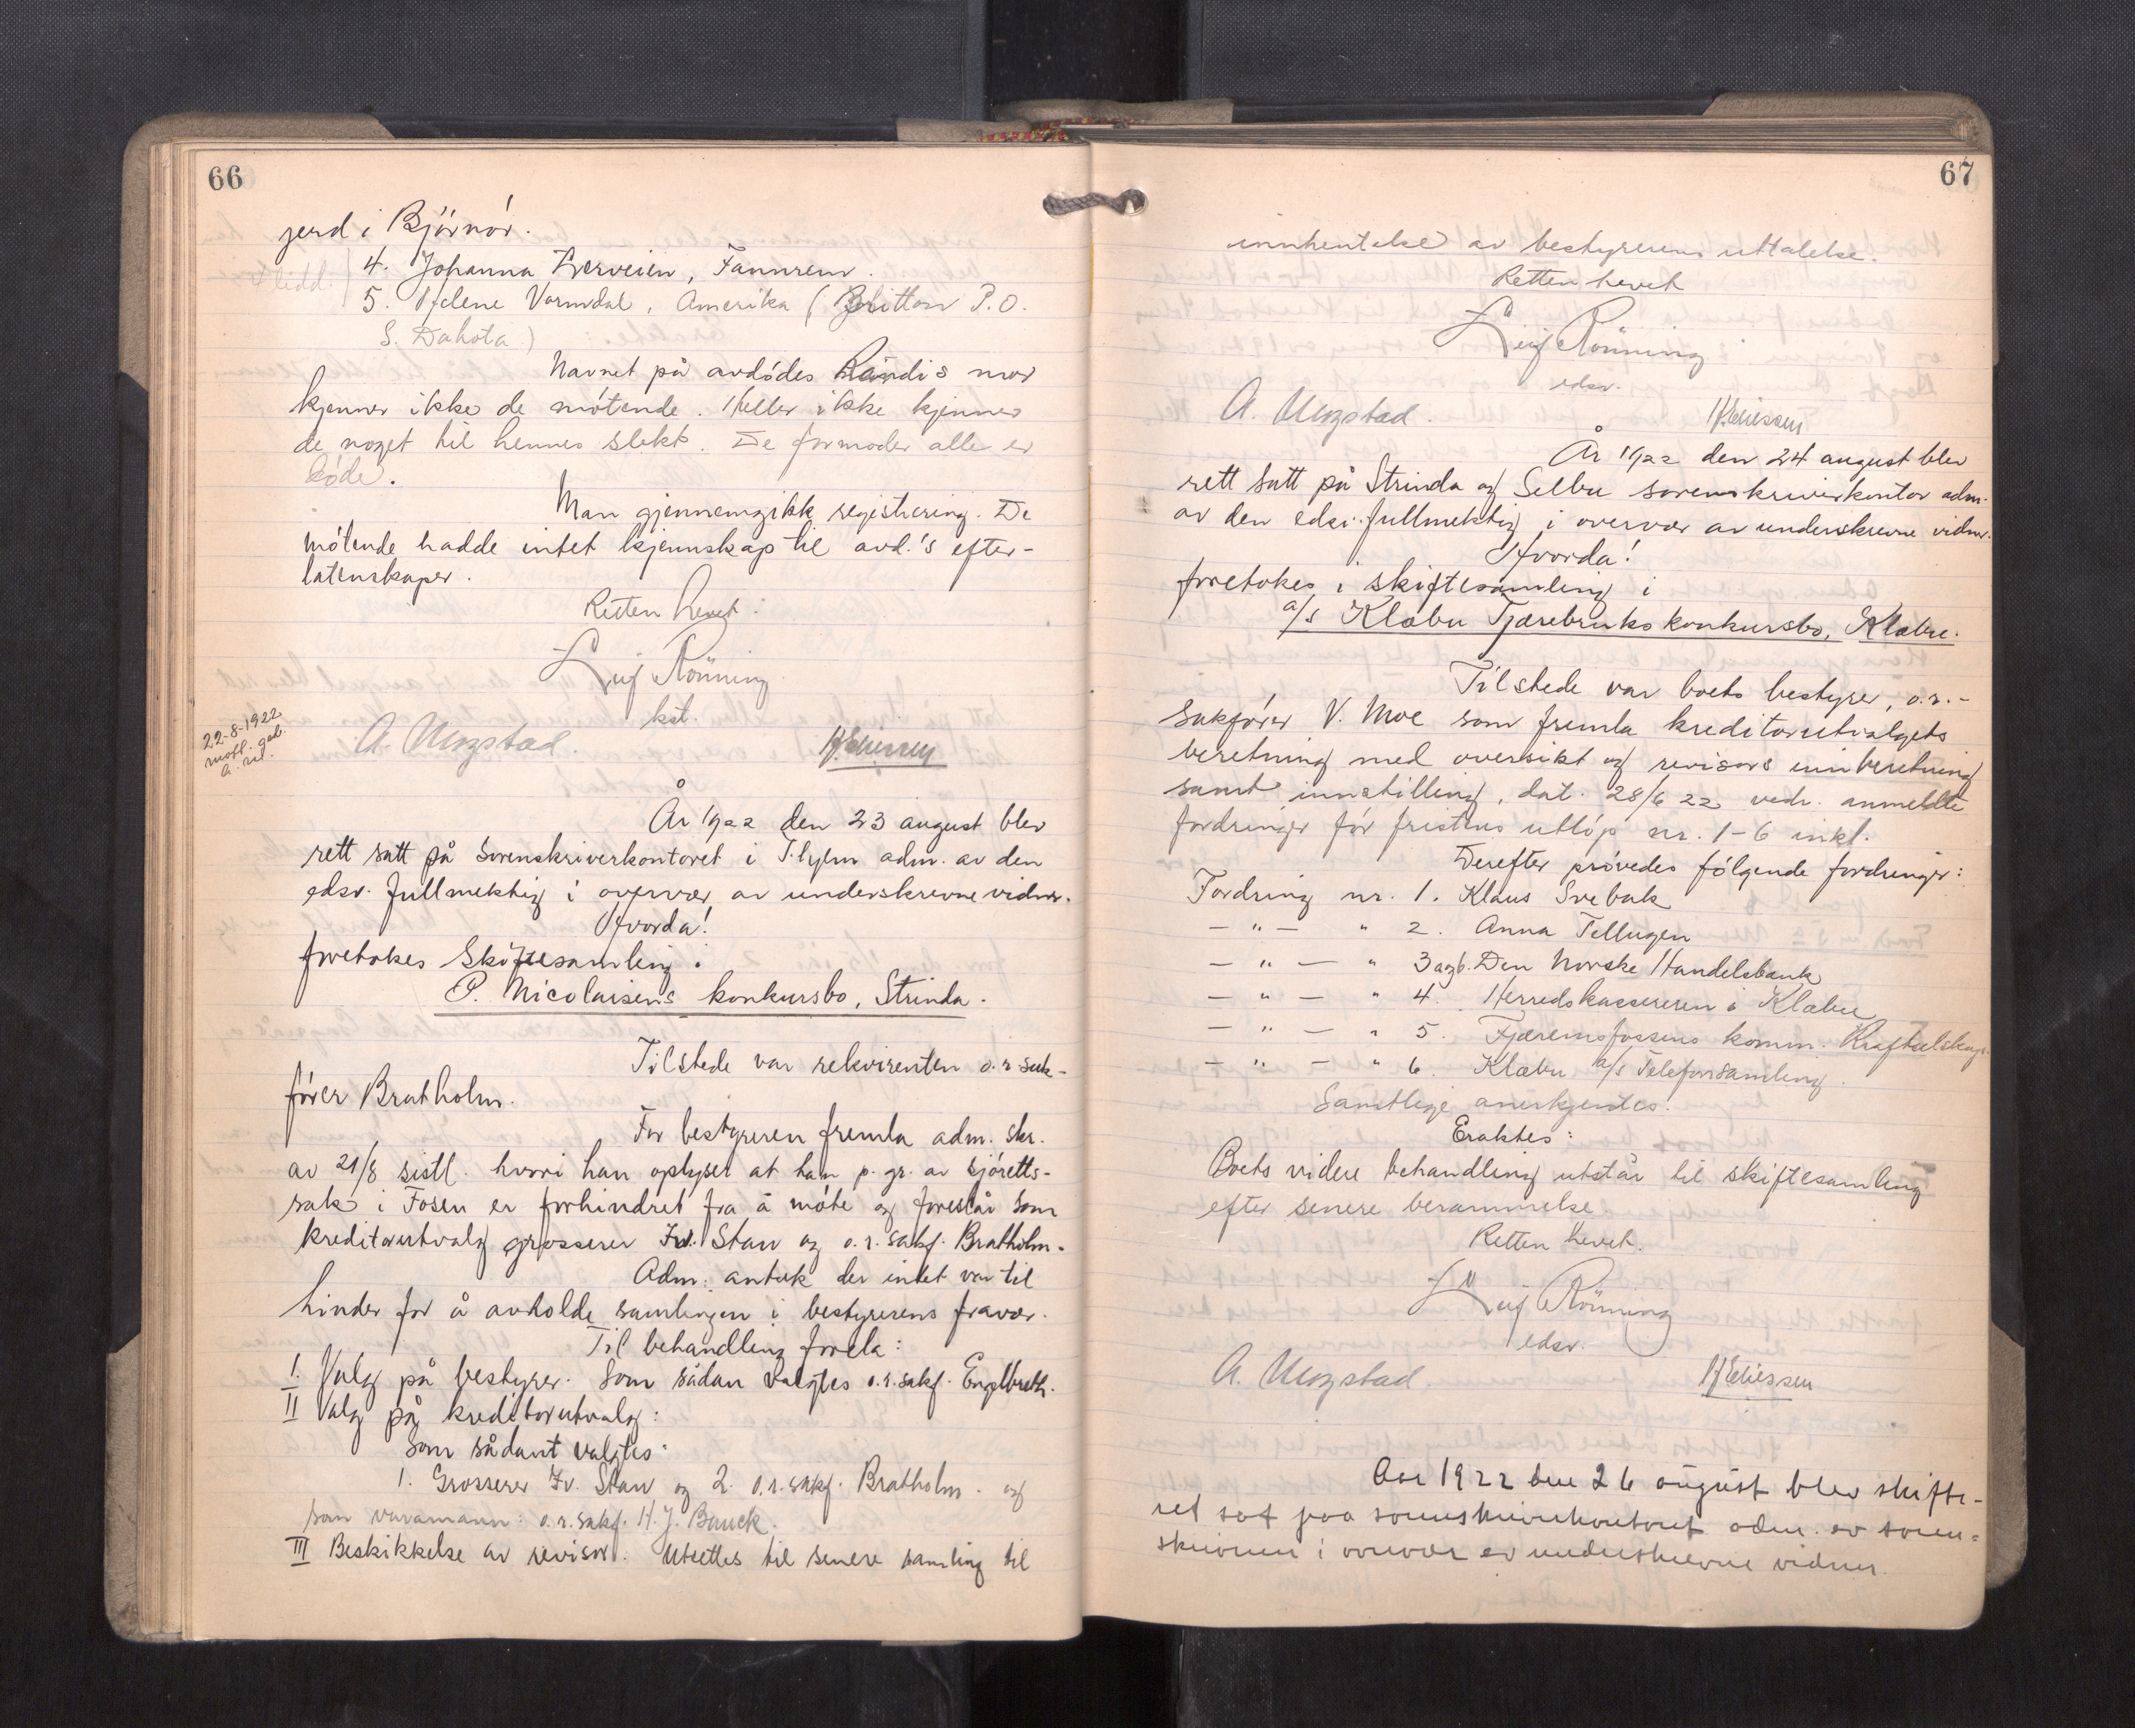 66
jerd i Björnör.
4. Johanna Lerveien, Fannrem.
5. Helene Vormdal, Amerika (Britton P.O.
S. Dakota)
Navnet på avdödes Randis mor
kjenner ikke de mötende. Heller ikke kjenner
de noget til hennes slekt. De formoder alle er
döde.
Man gjennemgikk registrering. De
mötende hadde intet kjennskap til avd.'s efter-
latenskaper.
Retten hevet.
Leif Rönning
kst.
A. Ungstad. H. Eliessen
22-8-1922
År 1922 den 23 august blev
rett satt på sorenskriverkontoret i T.hjem adm. av den
edsv. fullmektig i overvær av underskrevne vidner.
Hvorda!
foretokes Skiftesamling i
P. Nicolaisens konkursbo, Strinda.
Tilstede var rekvirenten o.r.sak-
förer Bratholm.
For bestyreren fremla adm. skr.
av 21/8 sistl. hvori han oplyser at han p. gr. av sjöretts-
sak i Fosen er forhindret fra å möte og foreslår som
kreditorutvalg grosserer Fr. Stav og o.r.sakf. Bratholm.
Adm. antok der intet var til
hinder for å avholde samlingen i bestyrerens fravær.
Til behandling forela:
I. Valg på bestyrer. Som sådan valgtes o.r.sakf. Englbreth.
II Valg på kreditorutvalg:
Som sådant valgtes:
1. Grosserer Fr. Stav og 2. o.r.sakf. Bratholm. og
som varamann: o.r.sakf. H. J. Bauck.
III Beskikkelse av revisor. Utsettes til senere samling til
67
innhentelse av bestyrerens uttalelse.
Retten hevet
Leif Rönning
edsv.
A. Ungstad. H. Eliessen
År 1922 den 24 august blev
rett satt på Strinda og Selbu sorenskriverkontor adm.
av den edsv. fullmektig i overvær av underskrevne vidner.
Hvorda!
foretokes i skiftesamling i
a/s Klæbu Tjærebruks konkursbo, Klæbu.
Tilstede var boets bestyrer, o.r.-
sakförer V. Moe som fremla kreditorutvalgets
beretning med oversikt og revisors innberetning
samt innstilling, dat. 28/6 22 vedr. anmeldte
fordringer för fristens utlöp nr. 1-6 inkl.
Derefter prövedes fölgende fordringer:
Fordring nr. 1. Klaus Svebak
— " — " 2. Anna Tellugen
— " — " 3 a og b. Den Norske Handelsbank
— " — " 4. Herredskassereren i Klæbu
— " — " 5. Fjæremsfossens komm. Kraftselskap.
— " — " 6. Klæbu a/s Telefonsamling.
Samtlige anerkjentes.
Eraktes:
Boets videre behandling utstår til skiftesamling
efter senere berammelse.
Retten hevet.
Leif Rönning
edsv.
A. Ungstad. H. Eliessen
Aar 1922 den 26 august blev skifte-
ret sat paa sorenskriverkontoret adm. av soren-
skriveren i overvær av underskrevne vidner.